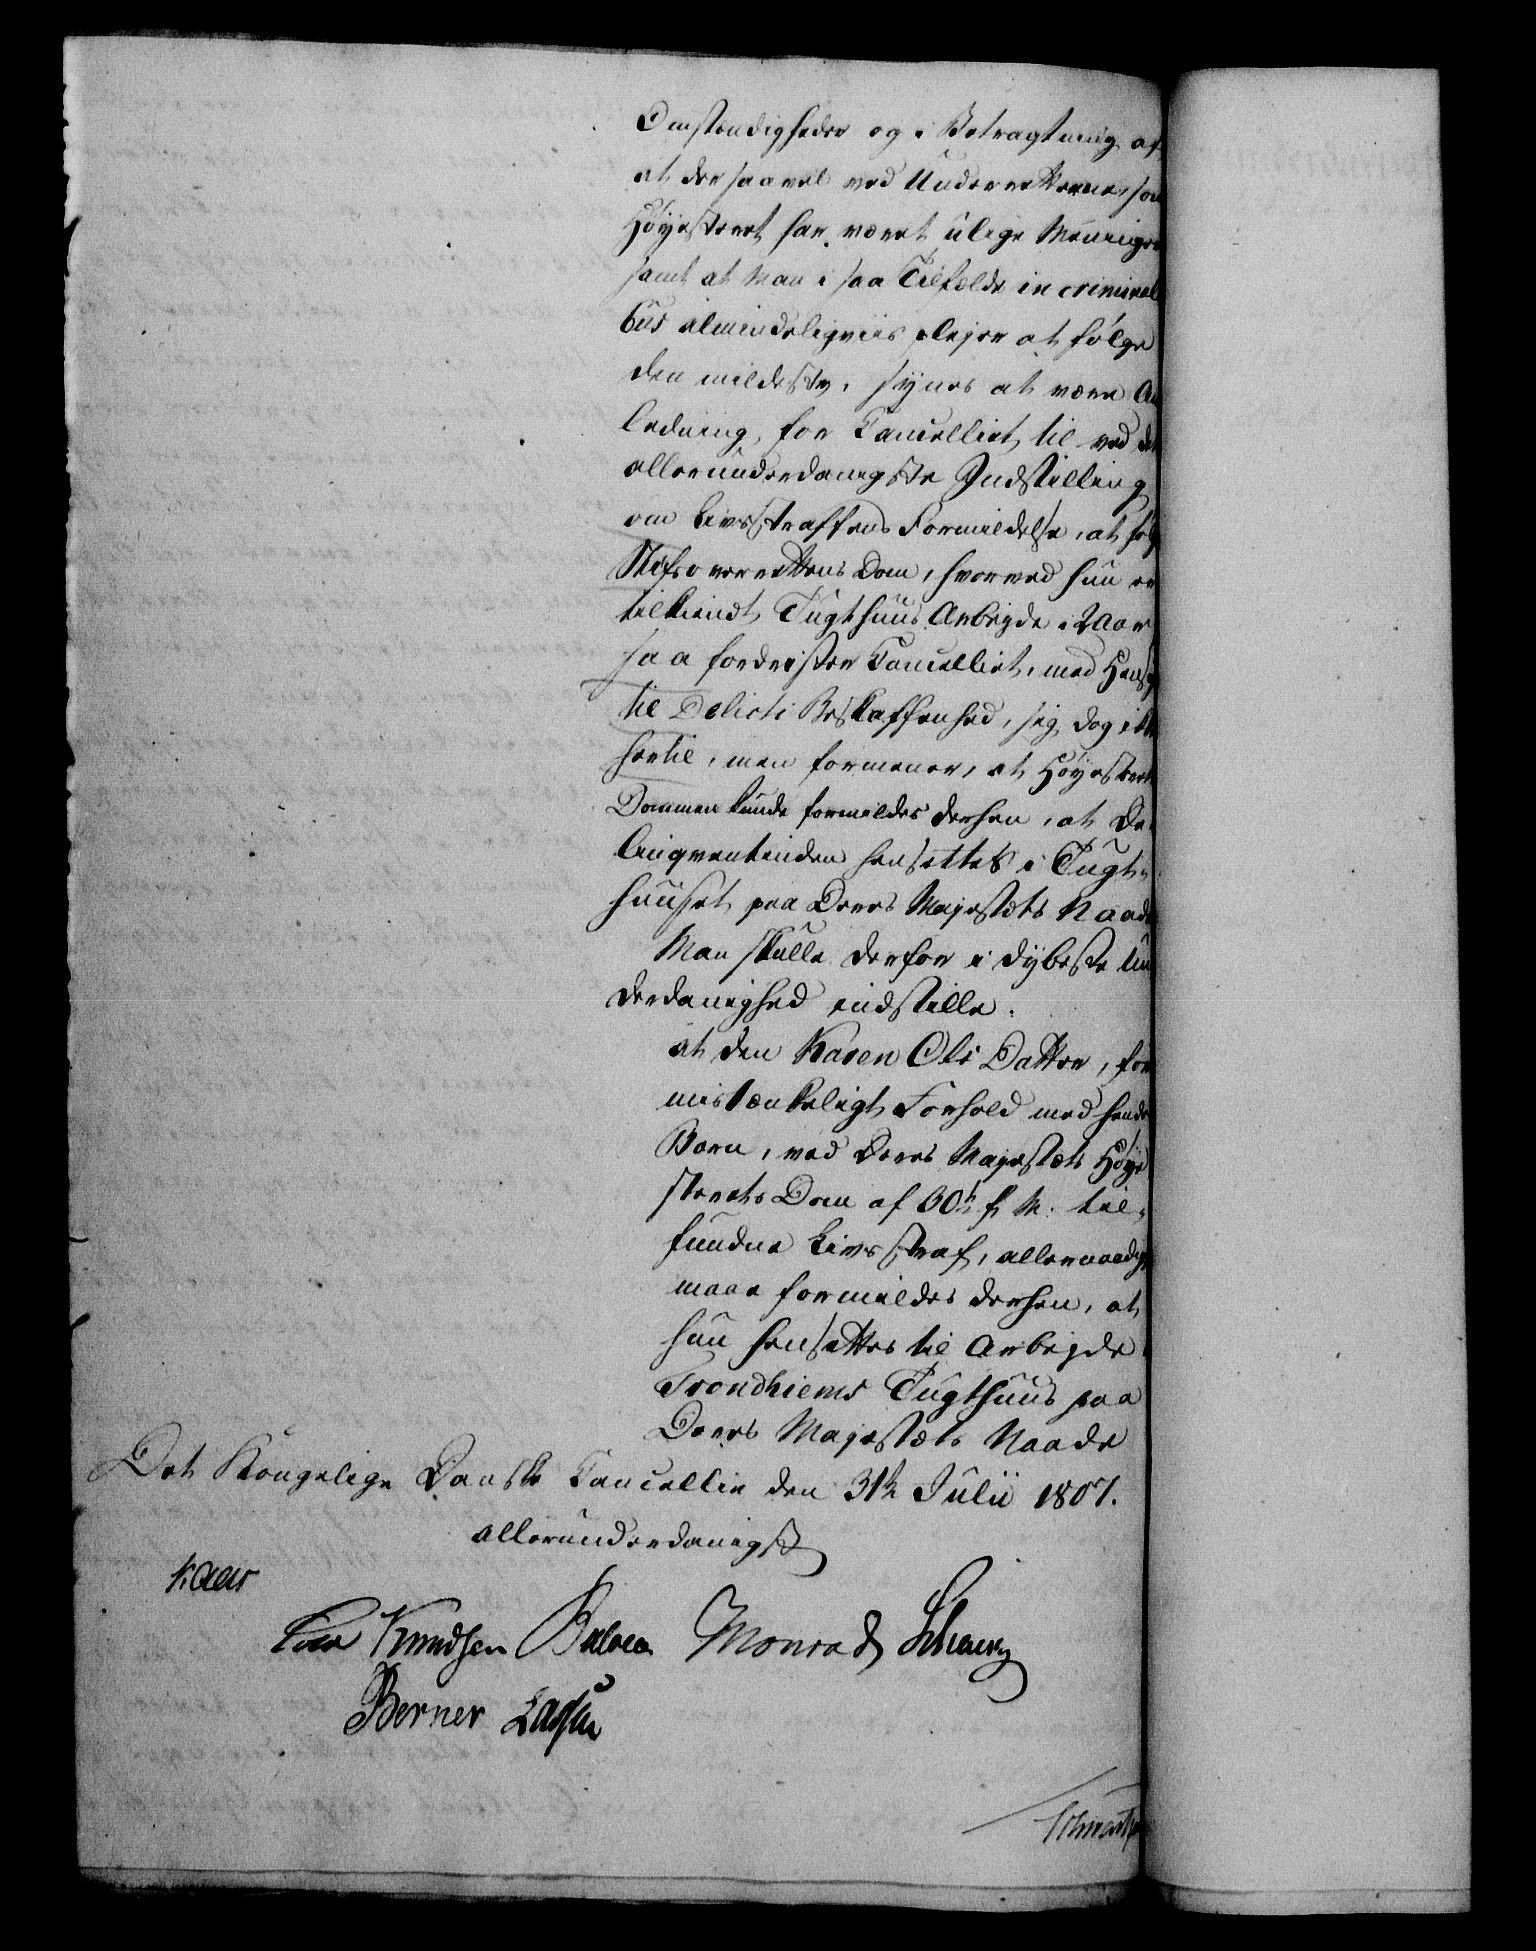 Omstændigheder og i Betragtning af
at der saavel ved Underretterne som
Høyesteret har været ulige Meninger
samt at Man i saa Tilfælde in criminali
bus almindeligviis plejer at følge
den mildeste, synes at være An
ledning for Cancelliet til ved det
allerunderdanigste Indstilling
om Livsstraffens Formildelse, at følge
Stifsoverrettens Dom, hvorved hun er
tilkiendt Tugthuus Arbejde i 2 Aar
saa fordrister Cancelliet, med Hensyn
til Delicti Beskaffenhed, sig dog ikke
hertil, men formener, at Høyesterets
Dommen kunde formildes derhen, at De-
linqventinden hensættes i Tugt-
huuset paa Deres Majestæts Naade
Man skulle derfor i dybeste Un
derdanighed indstille:
at den Karen Ols Datter, for
mistænkeligt Forhold med hendes
Barn, ved Deres Majestæts Høye
sterets Dom af 30te f. M. til-
fundne Livsstraf, allernaadigst
maae formildes derhen, at
hun hensættes til Arbejde i
Trondhiems Tugthuus paa
Deres Majestæts Naade
Det Kongelige Danske Cancellie den 31te Julii 1807.
allerunderdanigst
Kaas
Knudsen Bülow Monrad
Berner Lassen